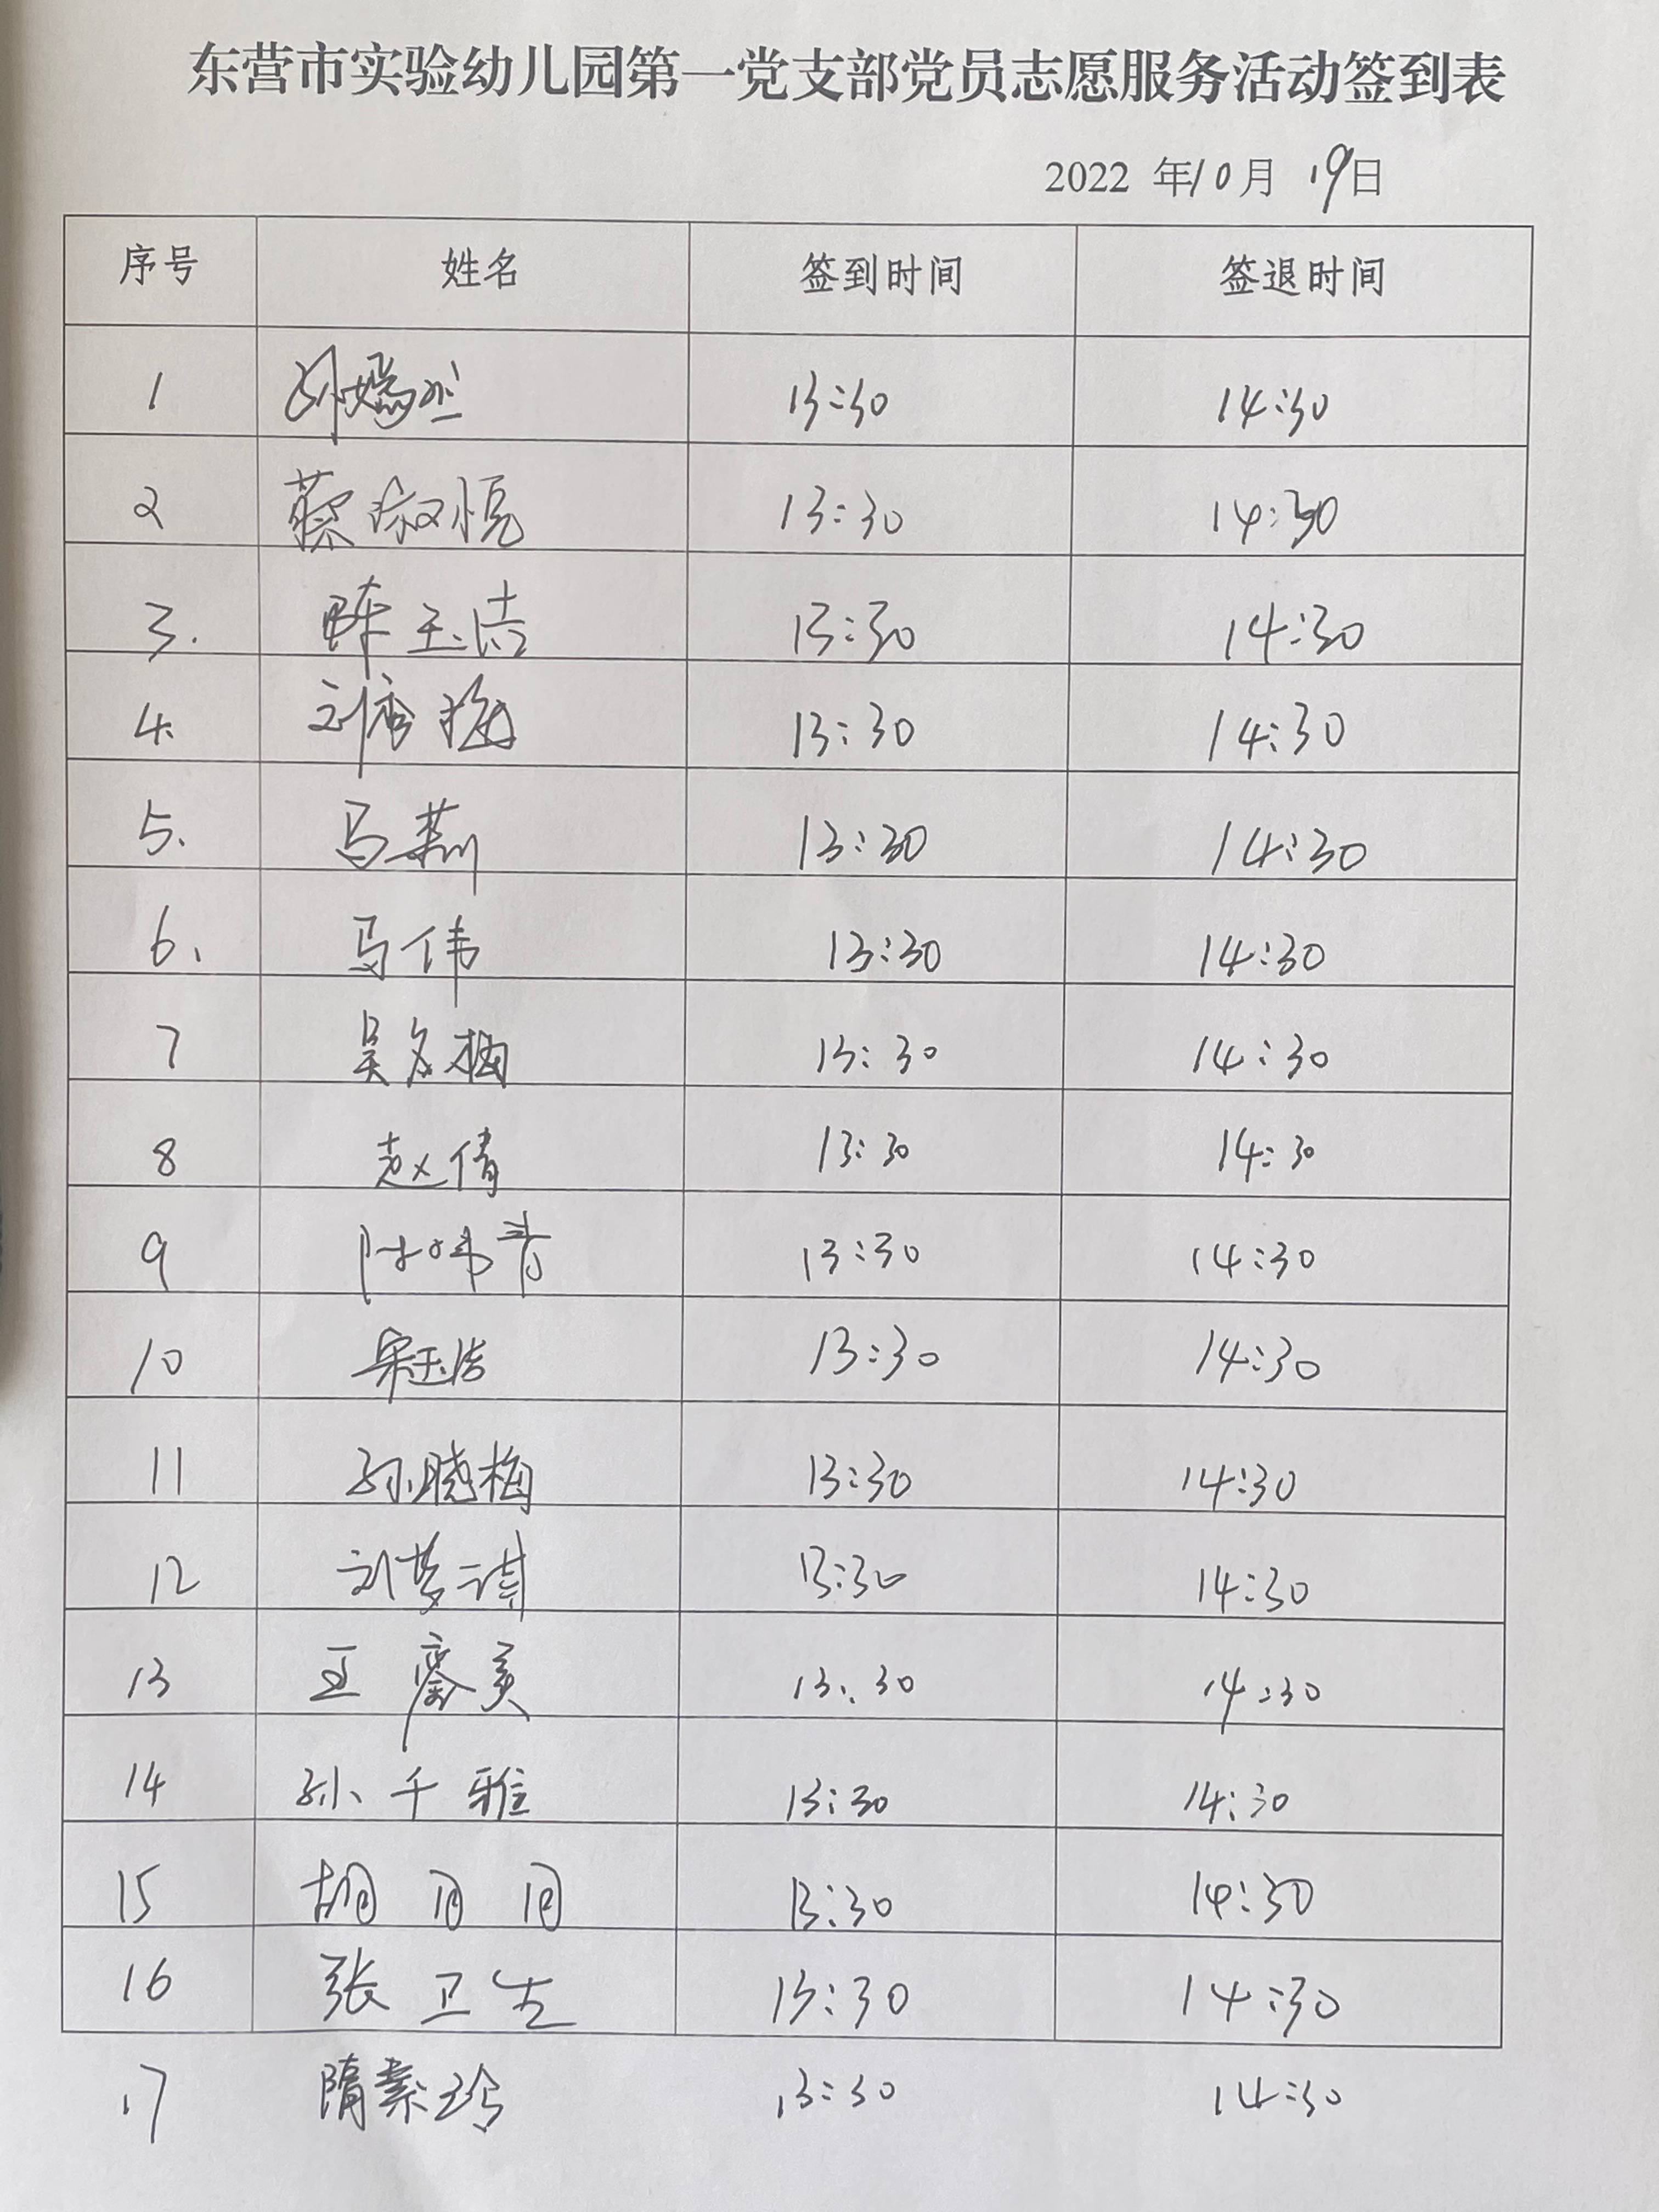 东营市实验幼儿园第一党支部党员志愿服务活动签到表
2022 年10月 19日
序号 姓名 签到时间 签退时间
1 13:30 14:30
2 蔡淑悦 13:30 14:30
3. 陈玉洁 13:30 14:30
4. 刘秀梅 13:30 14:30
5. 马燕 13:30 14:30
6. 马伟 13:30 14:30
7 吴冬梅 13:30 14:30
8 赵倩 13:30 14:30
9 13:30 14:30
10 宋玉洁 13:30 14:30
11 孙晓梅 13:30 14:30
12 刘梦琪 13:30 14:30
13 王 美 13:30 14:30
14 孙千雅 13:30 14:30
15 胡月月 13:30 14:30
16 张卫生 13:30 14:30
17 隋素玲 13:30 14:30